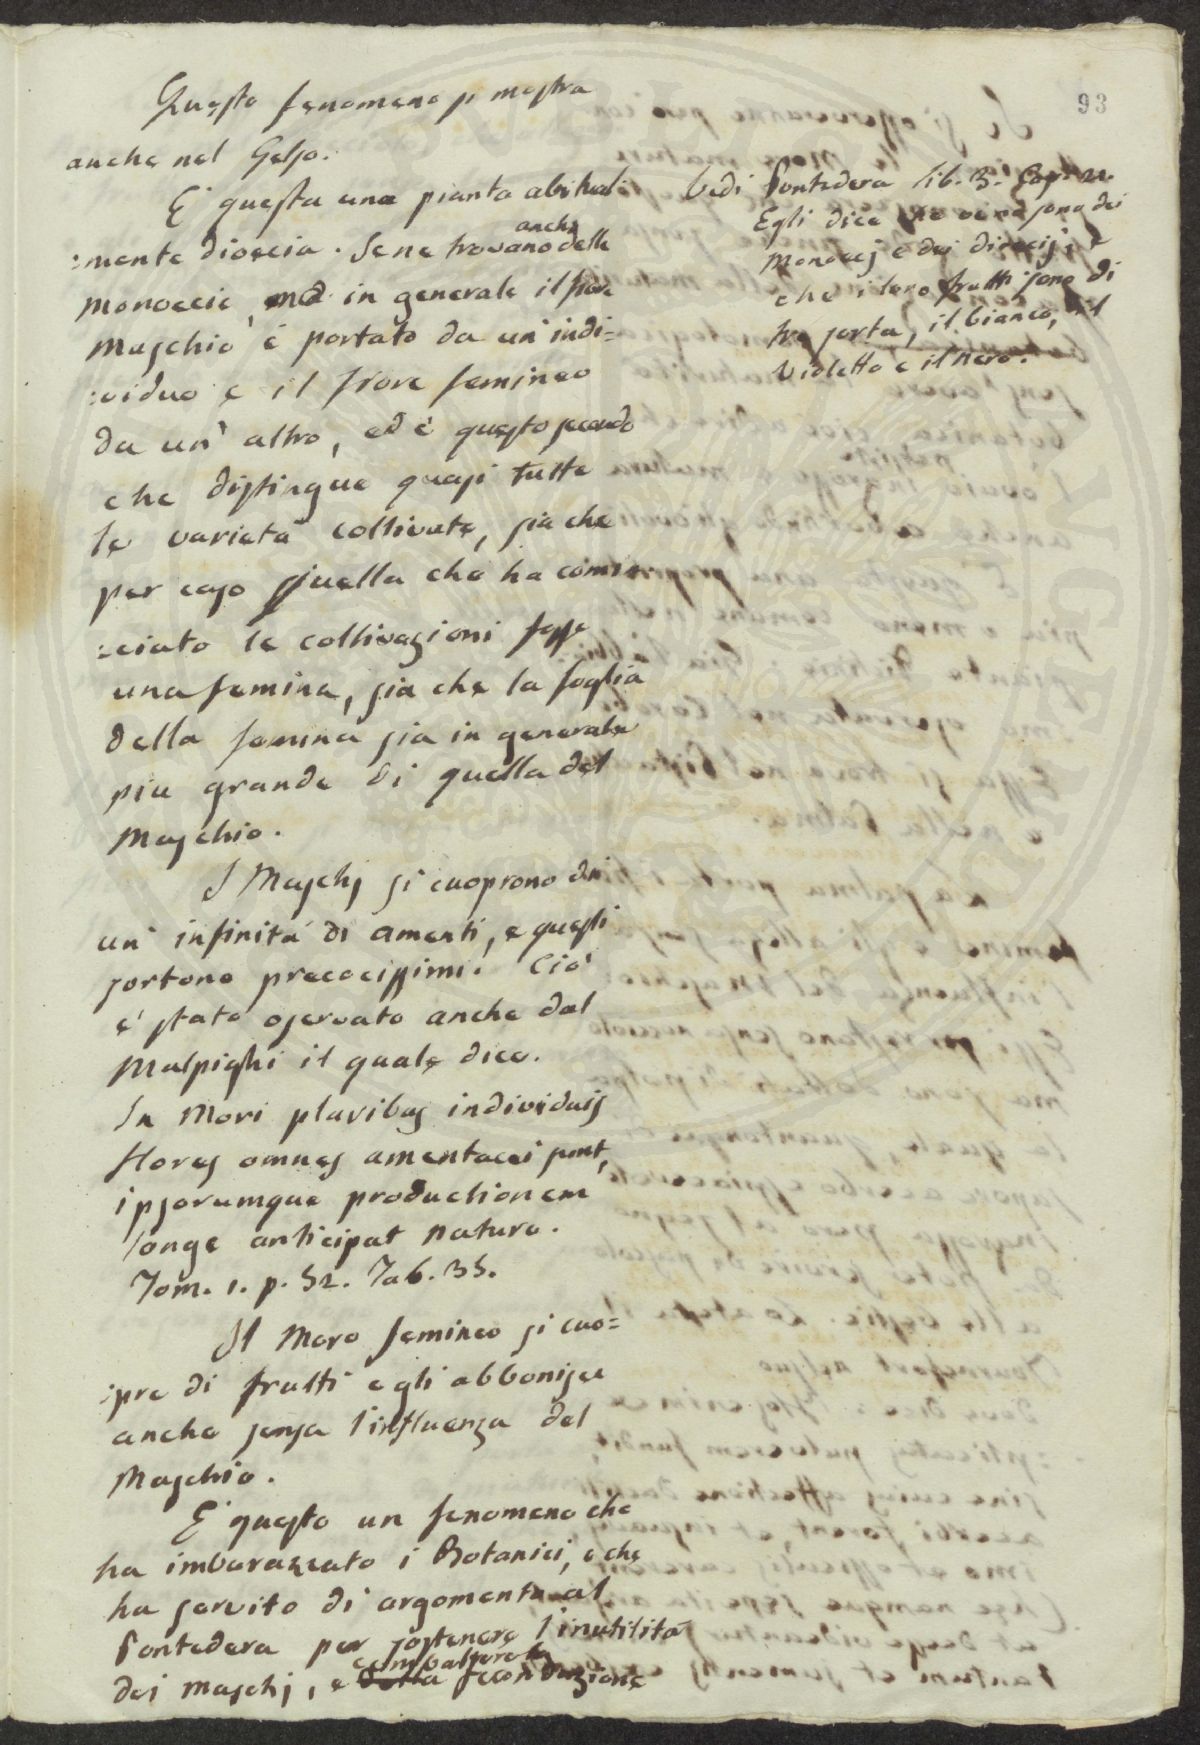 93
Questo fenomeno si mostra
anche nel Gelso.
E' questa una pianta abitual
:mente dioecia. Se ne trovano anche delle
monoecie, ma in generale il fiore
Maschio è portato da un' indi=
:viduo e il fiore femineo
da un' altro, ed è questo secondo
che distingue quasi tutte
le varietà coltivate, sia che
per caso quella che ha comin
:ciato le coltivazioni fosse
una femina, sia che la foglia
della femina sia in generale
piu grande di quella del
Maschio.
I Maschj si cuoprono di
un' infinità di amenti, e questi
sortono precocissimi. Ciò
e' stato oservato anche dal
Malpighi il quale dice.
In Mori pluribus individuis
flores omnes amentacei sunt,
ipsorumque productionem
longe anticipat natura.
Tom. 1. p. 52. Tab. 35.
Il Moro femineo si cuo=
:pre di frutti e gli abbonisce
anche senza l'influenza del
Maschio.
E' questo un fenomeno che
ha imbarazzato i Botanici, e che
ha servito di argomento al
Pontedera per sostenere l'inutilità
dei maschj, e combattere la della fecondazione
Vedi Pontedera lib. 3. Cap. 21.
Egli dice che ve ne sono dei
Monoecj e dei dioecij, e
che i loro frutti sono di
tre sorta, il bianco, il
violetto e il nero.